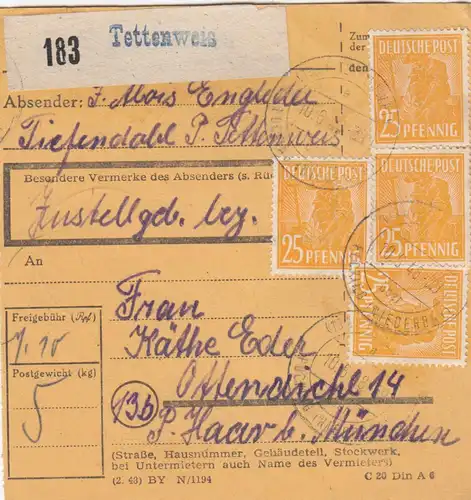 183 Tettenweis
Absender: J. Alois Engleder
Tiefendahl P. Tettenweis
Besondere Vermerke des Absenders (s. Rü
Zustellgeb. bez.
An
Frau
Käthe Eder
Ottendichl 14
13b
P. Haar b. München
Freigebühr (Rpf)
1,10
Postgewicht (kg)
5
(Straße, Hausnummer, Gebäudeteil, Stockwerk,
bei Untermietern auch Name des Vermieters)
(2. 43) BY N/1194
C 20 Din A 6
Zum
der
den
DEUTSCHE POST
25 PFENNIG
DEUTSCHE POST
25 PFENNIG
DEUTSCHE POST
25 PFENNIG
25 PFENNIG